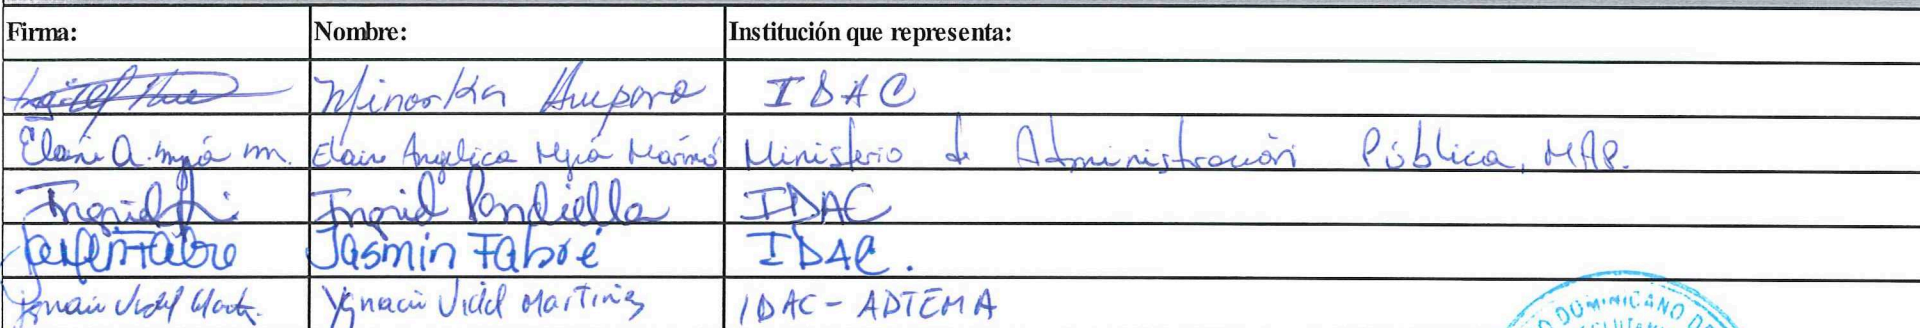 Firma: Nombre: Institución que representa:
Minorka Ampara IDAC
Elani A. Mejía M. Elain Angelica Mejía Marmó Ministerio de Administración Pública, MAP.
Ingrid Ingrid Pandiella IDAC
Fabre Jasmin Fabré IDAC.
Ygnacio Vidal Mart. Ygnacio Vidal Martínez IDAC - ADTEMA
DOMINICANO